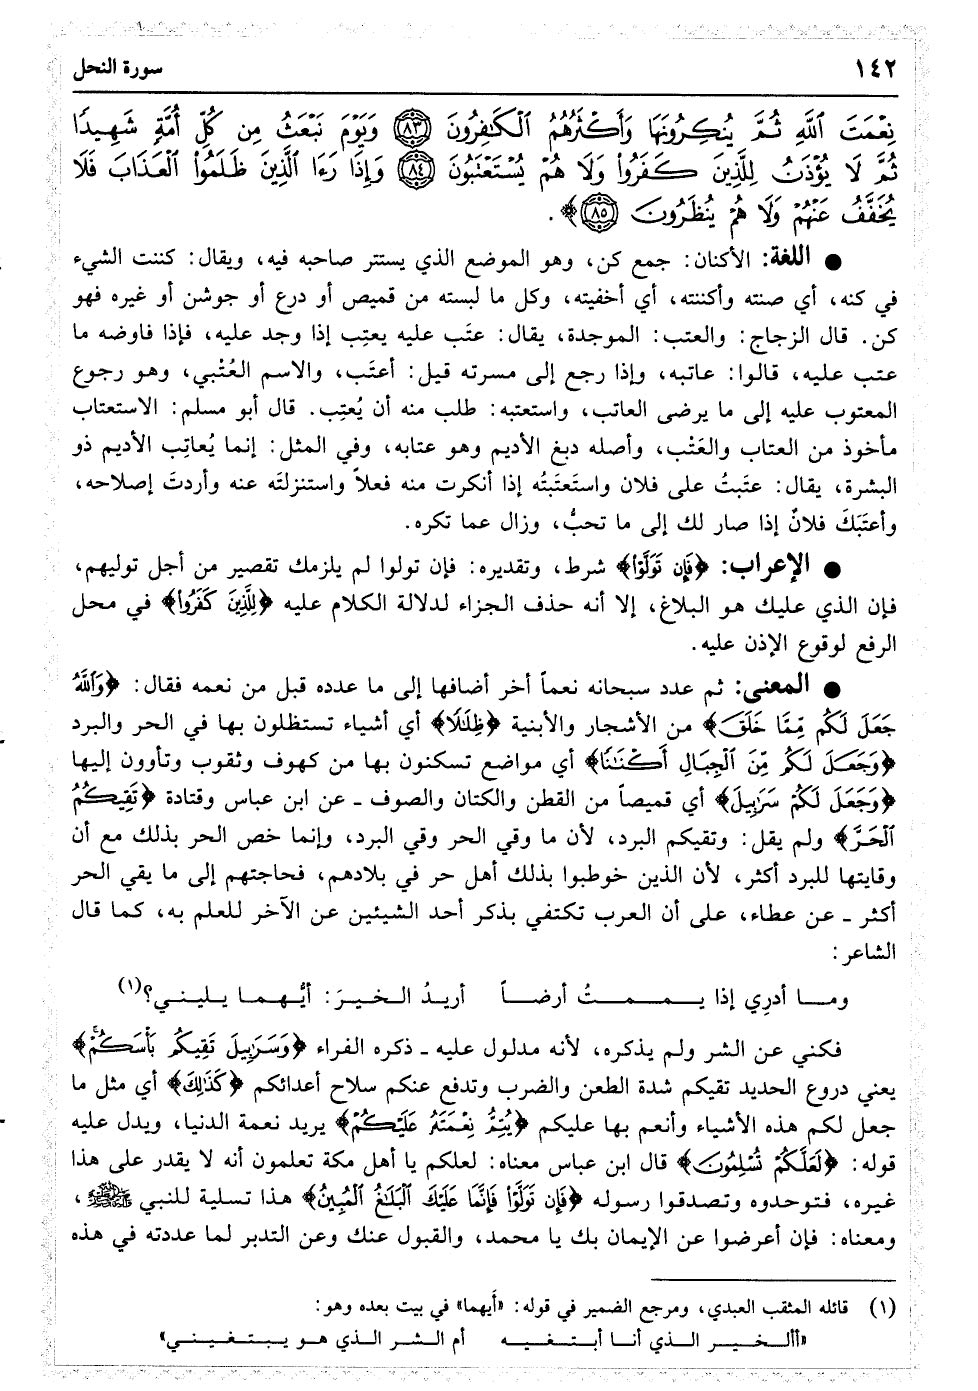 ١٤٢ سورة النحل
نِعْمَتَ ٱللَّهِ ثُمَّ يُنكِرُونَهَا وَأَكْثَرُهُمُ ٱلْكَٰفِرُونَ ﴿٨٣﴾ وَيَوْمَ نَبْعَثُ مِن كُلِّ أُمَّةٍ شَهِيدًا
ثُمَّ لَا يُؤْذَنُ لِلَّذِينَ كَفَرُوا۟ وَلَا هُمْ يُسْتَعْتَبُونَ ﴿٨٤﴾ وَإِذَا رَءَا ٱلَّذِينَ ظَلَمُوا۟ ٱلْعَذَابَ فَلَا
يُخَفَّفُ عَنْهُمْ وَلَا هُمْ يُنظَرُونَ ﴿٨٥﴾﴾.
● اللغة: الأكنان: جمع كن، وهو الموضع الذي يستتر صاحبه فيه، ويقال: كننت الشيء
في كنه، أي صنته وأكننته، أي أخفيته، وكل ما لبسته من قميص أو درع أو جوشن أو غيره فهو
كن. قال الزجاج: والعتب: الموجدة، يقال: عتَب عليه يعتِب إذا وجد عليه، فإذا فاوضه ما
عتب عليه، قالوا: عاتبه، وإذا رجع إلى مسرته قيل: أعتَب، والاسم العُتْبي، وهو رجوع
المعتوب عليه إلى ما يرضى العاتب، واستعتبه: طلب منه أن يُعتِب. قال أبو مسلم: الاستعتاب
مأخوذ من العتاب والعَتْب، وأصله دبغ الأديم وهو عتابه، وفي المثل: إنما يُعاتِب الأديم ذو
البشرة، يقال: عتَبتُ على فلان واستَعتَبتُه إذا أنكرت منه فعلاً واستنزلتَه عنه وأردتَ إصلاحه،
وأعتَبَكَ فلانٌ إذا صار لك إلى ما تحبُّ، وزال عما تكره.
● الإعراب: ﴿فَإِن تَوَلَّوْا۟﴾ شرط، وتقديره: فإن تولوا لم يلزمك تقصير من أجل توليهم،
فإن الذي عليك هو البلاغ، إلا أنه حذف الجزاء لدلالة الكلام عليه ﴿لِلَّذِينَ كَفَرُوا۟﴾ في محل
الرفع لوقوع الإذن عليه.
● المعنى: ثم عدد سبحانه نعماً أخر أضافها إلى ما عدده قبل من نعمه فقال: ﴿وَٱللَّهُ
جَعَلَ لَكُم مِّمَّا خَلَقَ﴾ من الأشجار والأبنية ﴿ظِلَٰلًا﴾ أي أشياء تستظلون بها في الحر والبرد
﴿وَجَعَلَ لَكُم مِّنَ ٱلْجِبَالِ أَكْنَٰنًا﴾ أي مواضع تسكنون بها من كهوف وثقوب وتأوون إليها
﴿وَجَعَلَ لَكُمْ سَرَٰبِيلَ﴾ أي قميصاً من القطن والكتان والصوف ـ عن ابن عباس وقتادة ﴿تَقِيكُمُ
ٱلْحَرَّ﴾ ولم يقل: وتقيكم البرد، لأن ما وقي الحر وقي البرد، وإنما خص الحر بذلك مع أن
وقايتها للبرد أكثر، لأن الذين خوطبوا بذلك أهل حر في بلادهم، فحاجتهم إلى ما يقي الحر
أكثر ـ عن عطاء، على أن العرب تكتفي بذكر أحد الشيئين عن الآخر للعلم به، كما قال
الشاعر:
ومـا أدرِي إذا يـمـمـتُ أرضـاً أريدُ الخيرَ: أيُّهما يليني؟(١)
فكني عن الشر ولم يذكره، لأنه مدلول عليه ـ ذكره الفراء ﴿وَسَرَٰبِيلَ تَقِيكُم بَأْسَكُمْ﴾
يعني دروع الحديد تقيكم شدة الطعن والضرب وتدفع عنكم سلاح أعدائكم ﴿كَذَٰلِكَ﴾ أي مثل ما
جعل لكم هذه الأشياء وأنعم بها عليكم ﴿يُتِمُّ نِعْمَتَهُۥ عَلَيْكُمْ﴾ يريد نعمة الدنيا، ويدل عليه
قوله: ﴿لَعَلَّكُمْ تُسْلِمُونَ﴾ قال ابن عباس معناه: لعلكم يا أهل مكة تعلمون أنه لا يقدر على هذا
غيره، فتوحدوه وتصدقوا رسوله ﴿فَإِن تَوَلَّوْا۟ فَإِنَّمَا عَلَيْكَ ٱلْبَلَٰغُ ٱلْمُبِينُ﴾ هذا تسلية للنبي ﷺ،
ومعناه: فإن أعرضوا عن الإيمان بك يا محمد، والقبول عنك وعن التدبر لما عددته في هذه
(١) قائله المثقب العبدي، ومرجع الضمير في قوله: «أَيهما» في بيت بعده وهو:
«أألخير الذي أنا أبتغيه أم الشر الذي هو يبتغيني»